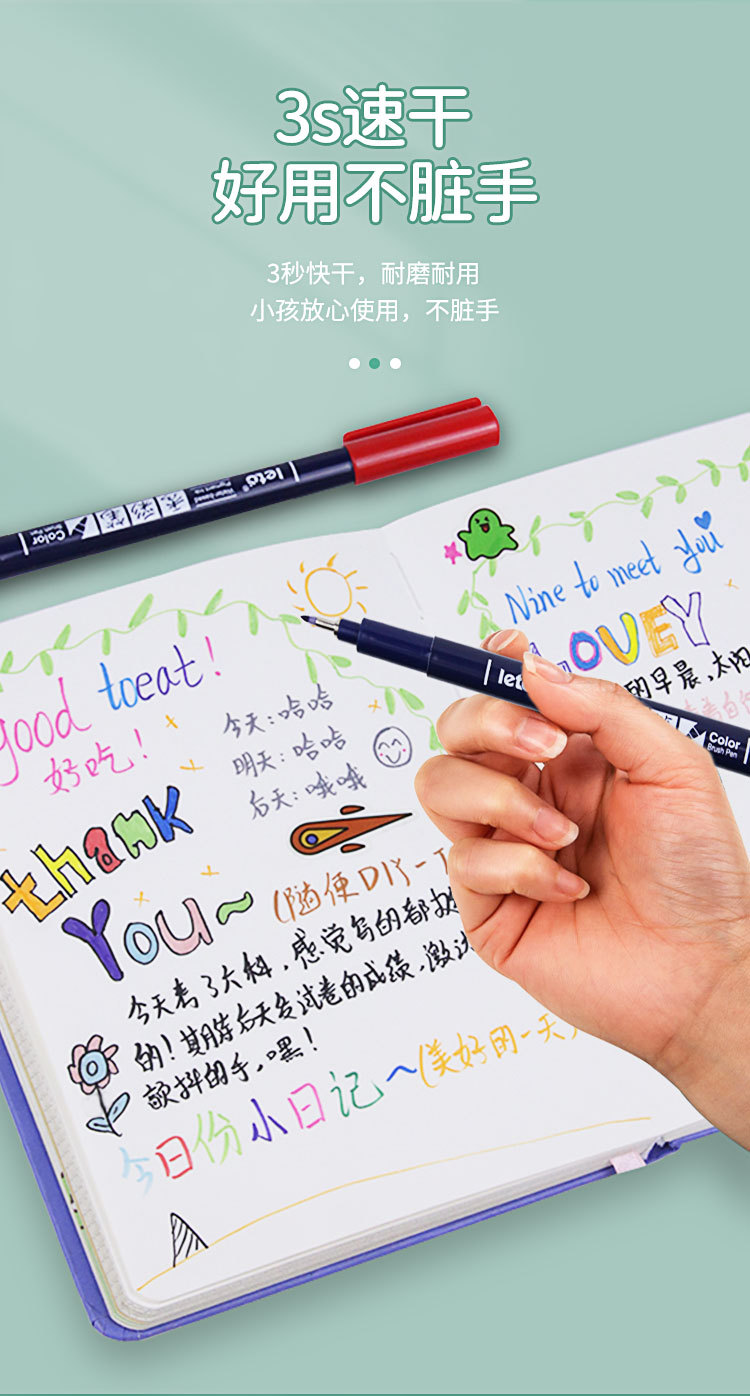 3s速干
好用不脏手
3秒快干，耐磨耐用
小孩放心使用，不脏手
leto®
Water-based
Pigment Ink
秀彩笔
Color
Brush Pen
Nine to meet you
LOVEY
的早晨,太阳
good toeat!
好吃!
今天:哈哈
明天:哈哈
后天:哦哦
leto
Color
Brush Pen
thank
You~
(随便DIY一下
今天考了大科,感觉写的都挺
的!期待后天发试卷的成绩,激动
颤抖的手,嘿!
今日份小日记~(美好的一天)